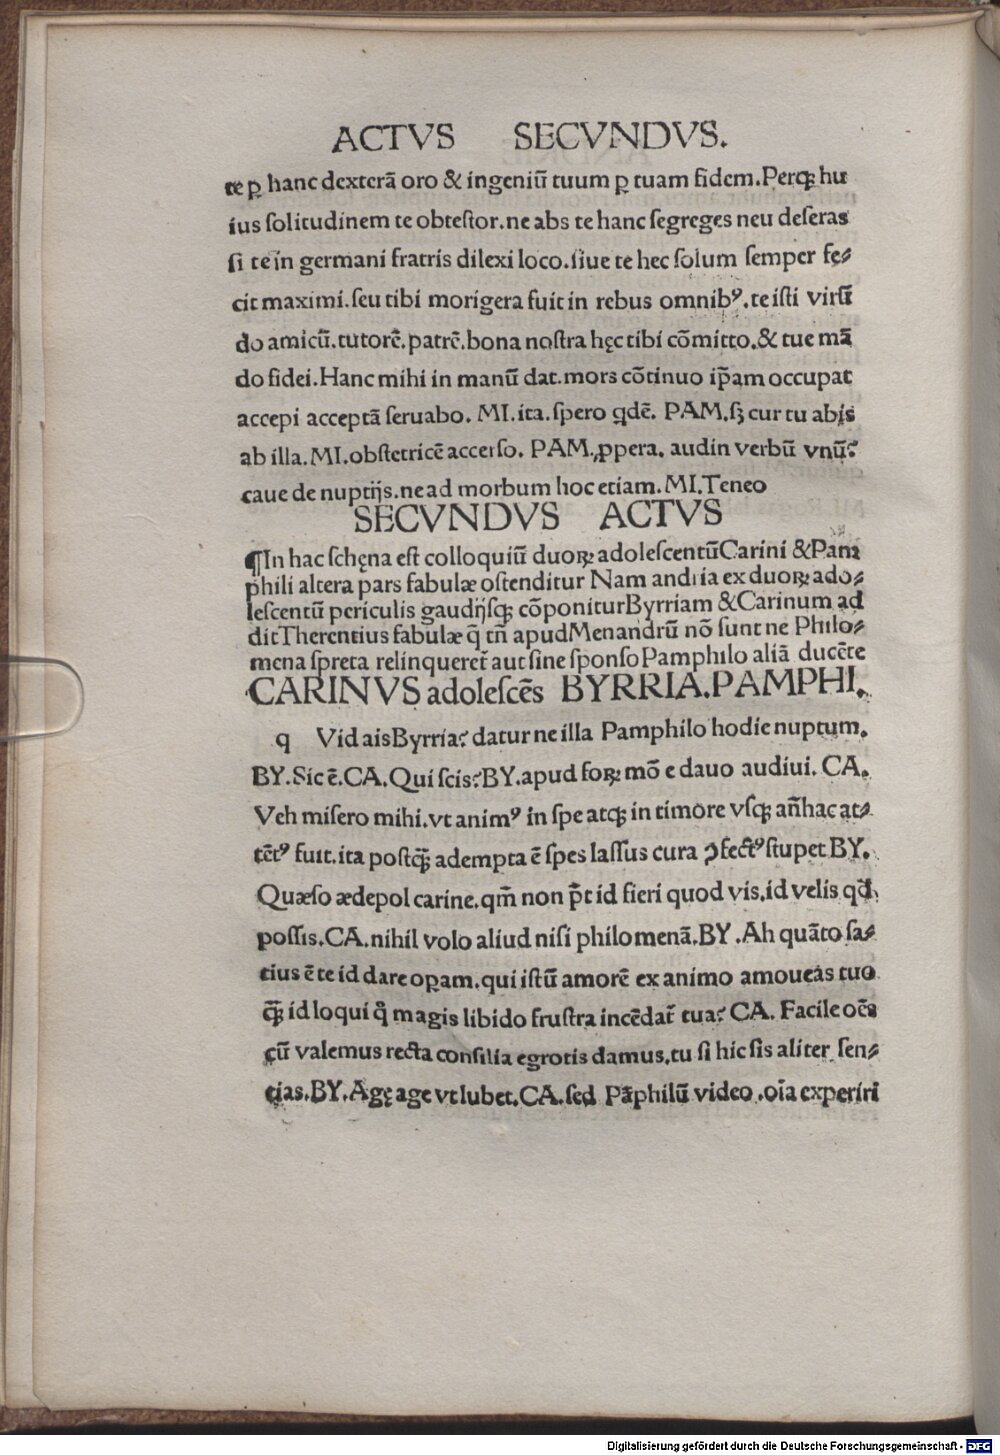 ACTVS SECVNDVS.
te ꝑ hanc dexterã oro & ingeniũ tuum ꝑ tuam fidem.Perqꝫ hu
ius ſolitudinem te obteſtor.ne abs te hanc ſegreges neu deſeras
ſi te in germani fratris dilexi loco.ſiue te hec ſolum ſemper fe⸗
cit maximi.ſeu tibi morigera fuit in rebus omnibꝰ.te iſti virũ
do amicũ.tutorẽ.patrẽ.bona noſtra hęc tibi cõmitto.& tue mã
do fidei.Hanc mihi in manũ dat.mors cõtinuo ip̃am occupat
accepi acceptã ſeruabo. MI.ita.ſpero qdẽ. PAM.ſꝫ cur tu abis
ab illa.MI.obſtetricẽ accerſo. PAM.ꝓpera. audin verbũ vnũ?
caue de nuptijs.ne ad morbum hoc etiam.MI.Teneo
SECVNDVS ACTVS
¶In hac ſchęna eſt colloquiũ duoꝝ adoleſcentũ Carini & Pam
phili altera pars fabulæ oſtenditur Nam andria ex duoꝝ ado⸗
leſcentũ periculis gaudijſqꝫ cõponitur Byrriam & Carinum ad
dit Therentius fabulæ q̃ tñ apud Menandrũ nõ ſunt ne Philo⸗
mena ſpreta relinqueret̃ aut ſine ſponſo Pamphilo aliã ducẽte
CARINVS adoleſcẽs BYRRIA.PAMPHI.
q Vid ais Byrria? datur ne illa Pamphilo hodie nuptum.
BY.Sic ẽ.CA.Qui ſcis?BY.apud foꝝ mõ e dauo audiui. CA.
Veh miſero mihi.vt animꝰ in ſpe atqꝫ in timore vſqꝫ añhac at⸗
tẽtꝰ fuit.ita poſtqꝫ̃ adempta ẽ ſpes laſſus cura ↄfectꝰ ſtupet BY.
Quæſo ædepol carine.qm̃ non p̃t id fieri quod vis.id velis qd̃
poſſis.CA.nihil volo aliud niſi philomenã.BY.Ah quãto ſa⸗
tius ẽ te id dare oꝑam.qui iſtũ amorẽ ex animo amoueas tuo
qꝫ̃ id loqui qͦ magis libido fruſtra incẽdat̃ tua? CA. Facile oẽs
cũ valemus recta conſilia egrotis damus.tu ſi hic ſis aliter ſen⸗
tias.BY.Agę age vt lubet.CA.ſed Pãphilũ video .oĩa experiri
Digitalisierung gefördert durch die Deutsche Forschungsgemeinschaft - DFG